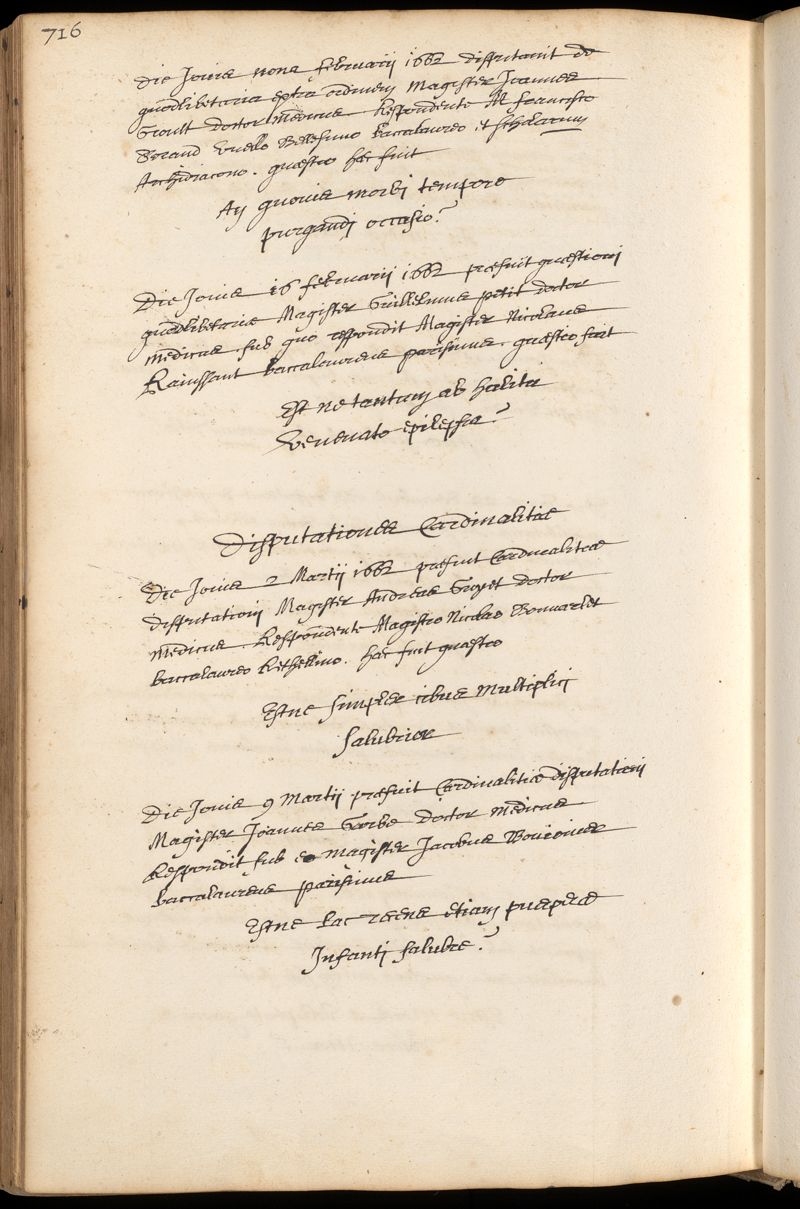 716
Die Jovis nona februarii 1662 disputavit de
quodlibetaria extra ordinem Magister Joannes
doctor medicus Respondente M francisco
baccalaureo et scholarum
Archidiacono. quæstio hæc fuit
An quovis morbi tempore
purgandi occasio?
Die Jovis 16 februarii 1662 præfuit quæstioni
quodlibetariæ Magister Guillelmus petit doctor
medicus. sub quo respondit Magister Nicolaus
Rainssant baccalaureus parisinus. quæstio fuit
Est ne tantum ab halitu
venenato epilepsia?
Disputationes Cardinalitiæ
Die Jovis 2 Martii 1662 præfuit Cardinalitiæ
disputationi Magister Andreas doctor
medicus. Respondente Magistro Nicolao Bonvarlet
baccalaureo Rethelino. hæc fuit quæstio
Estne simplex cibus multiplici
salubrior
Die Jovis 9 Martii præfuit Cardinalitiæ disputationi
Magister Joannes doctor medicus
Respondit sub eo Magister Jacobus
baccalaureus parisinus
Estne lac recens etiam puerperæ
Infanti salubre?